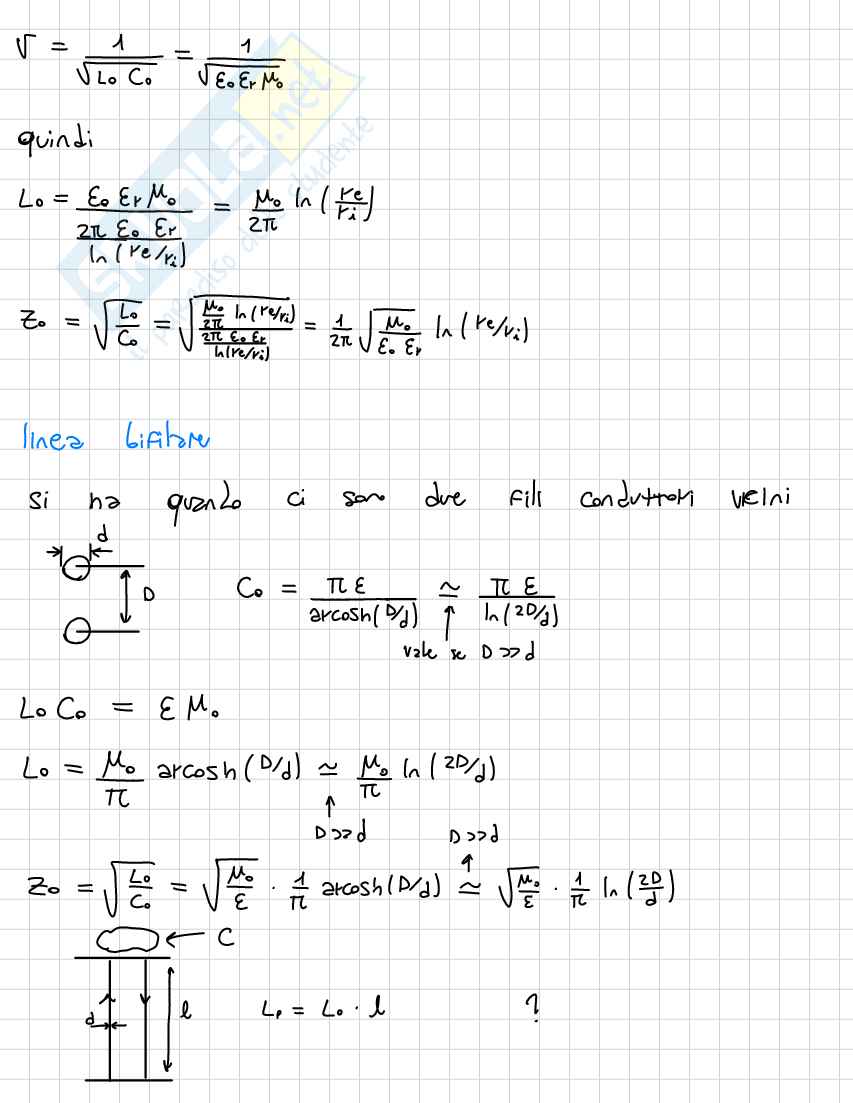 v = 1/√(L₀ C₀) = 1/√(ε₀ εr μ₀)
quindi
L₀ = ε₀ εr μ₀ / (2π ε₀ εr / ln(re/ri)) = μ₀/2π ln(re/ri)
Z₀ = √(L₀/C₀) = √((μ₀/2π ln(re/ri)) / (2π ε₀ εr / ln(re/ri))) = 1/2π √(μ₀/(ε₀ εr)) ln(re/ri)
SKUOLA.net
il paradiso dello studente
linea bifilare
Si ha quando ci sono due fili conduttori vicini
d
D
C₀ = π ε / arcosh(D/d) ≃ π ε / ln(2D/d)
vale se D >> d
L₀ C₀ = ε μ₀
L₀ = μ₀/π arcosh(D/d) ≃ μ₀/π ln(2D/d)
D >> d
D >> d
Z₀ = √(L₀/C₀) = √(μ₀/ε) · 1/π arcosh(D/d) ≃ √(μ₀/ε) · 1/π ln(2D/d)
C
d
l
Lp = L₀ · l ?